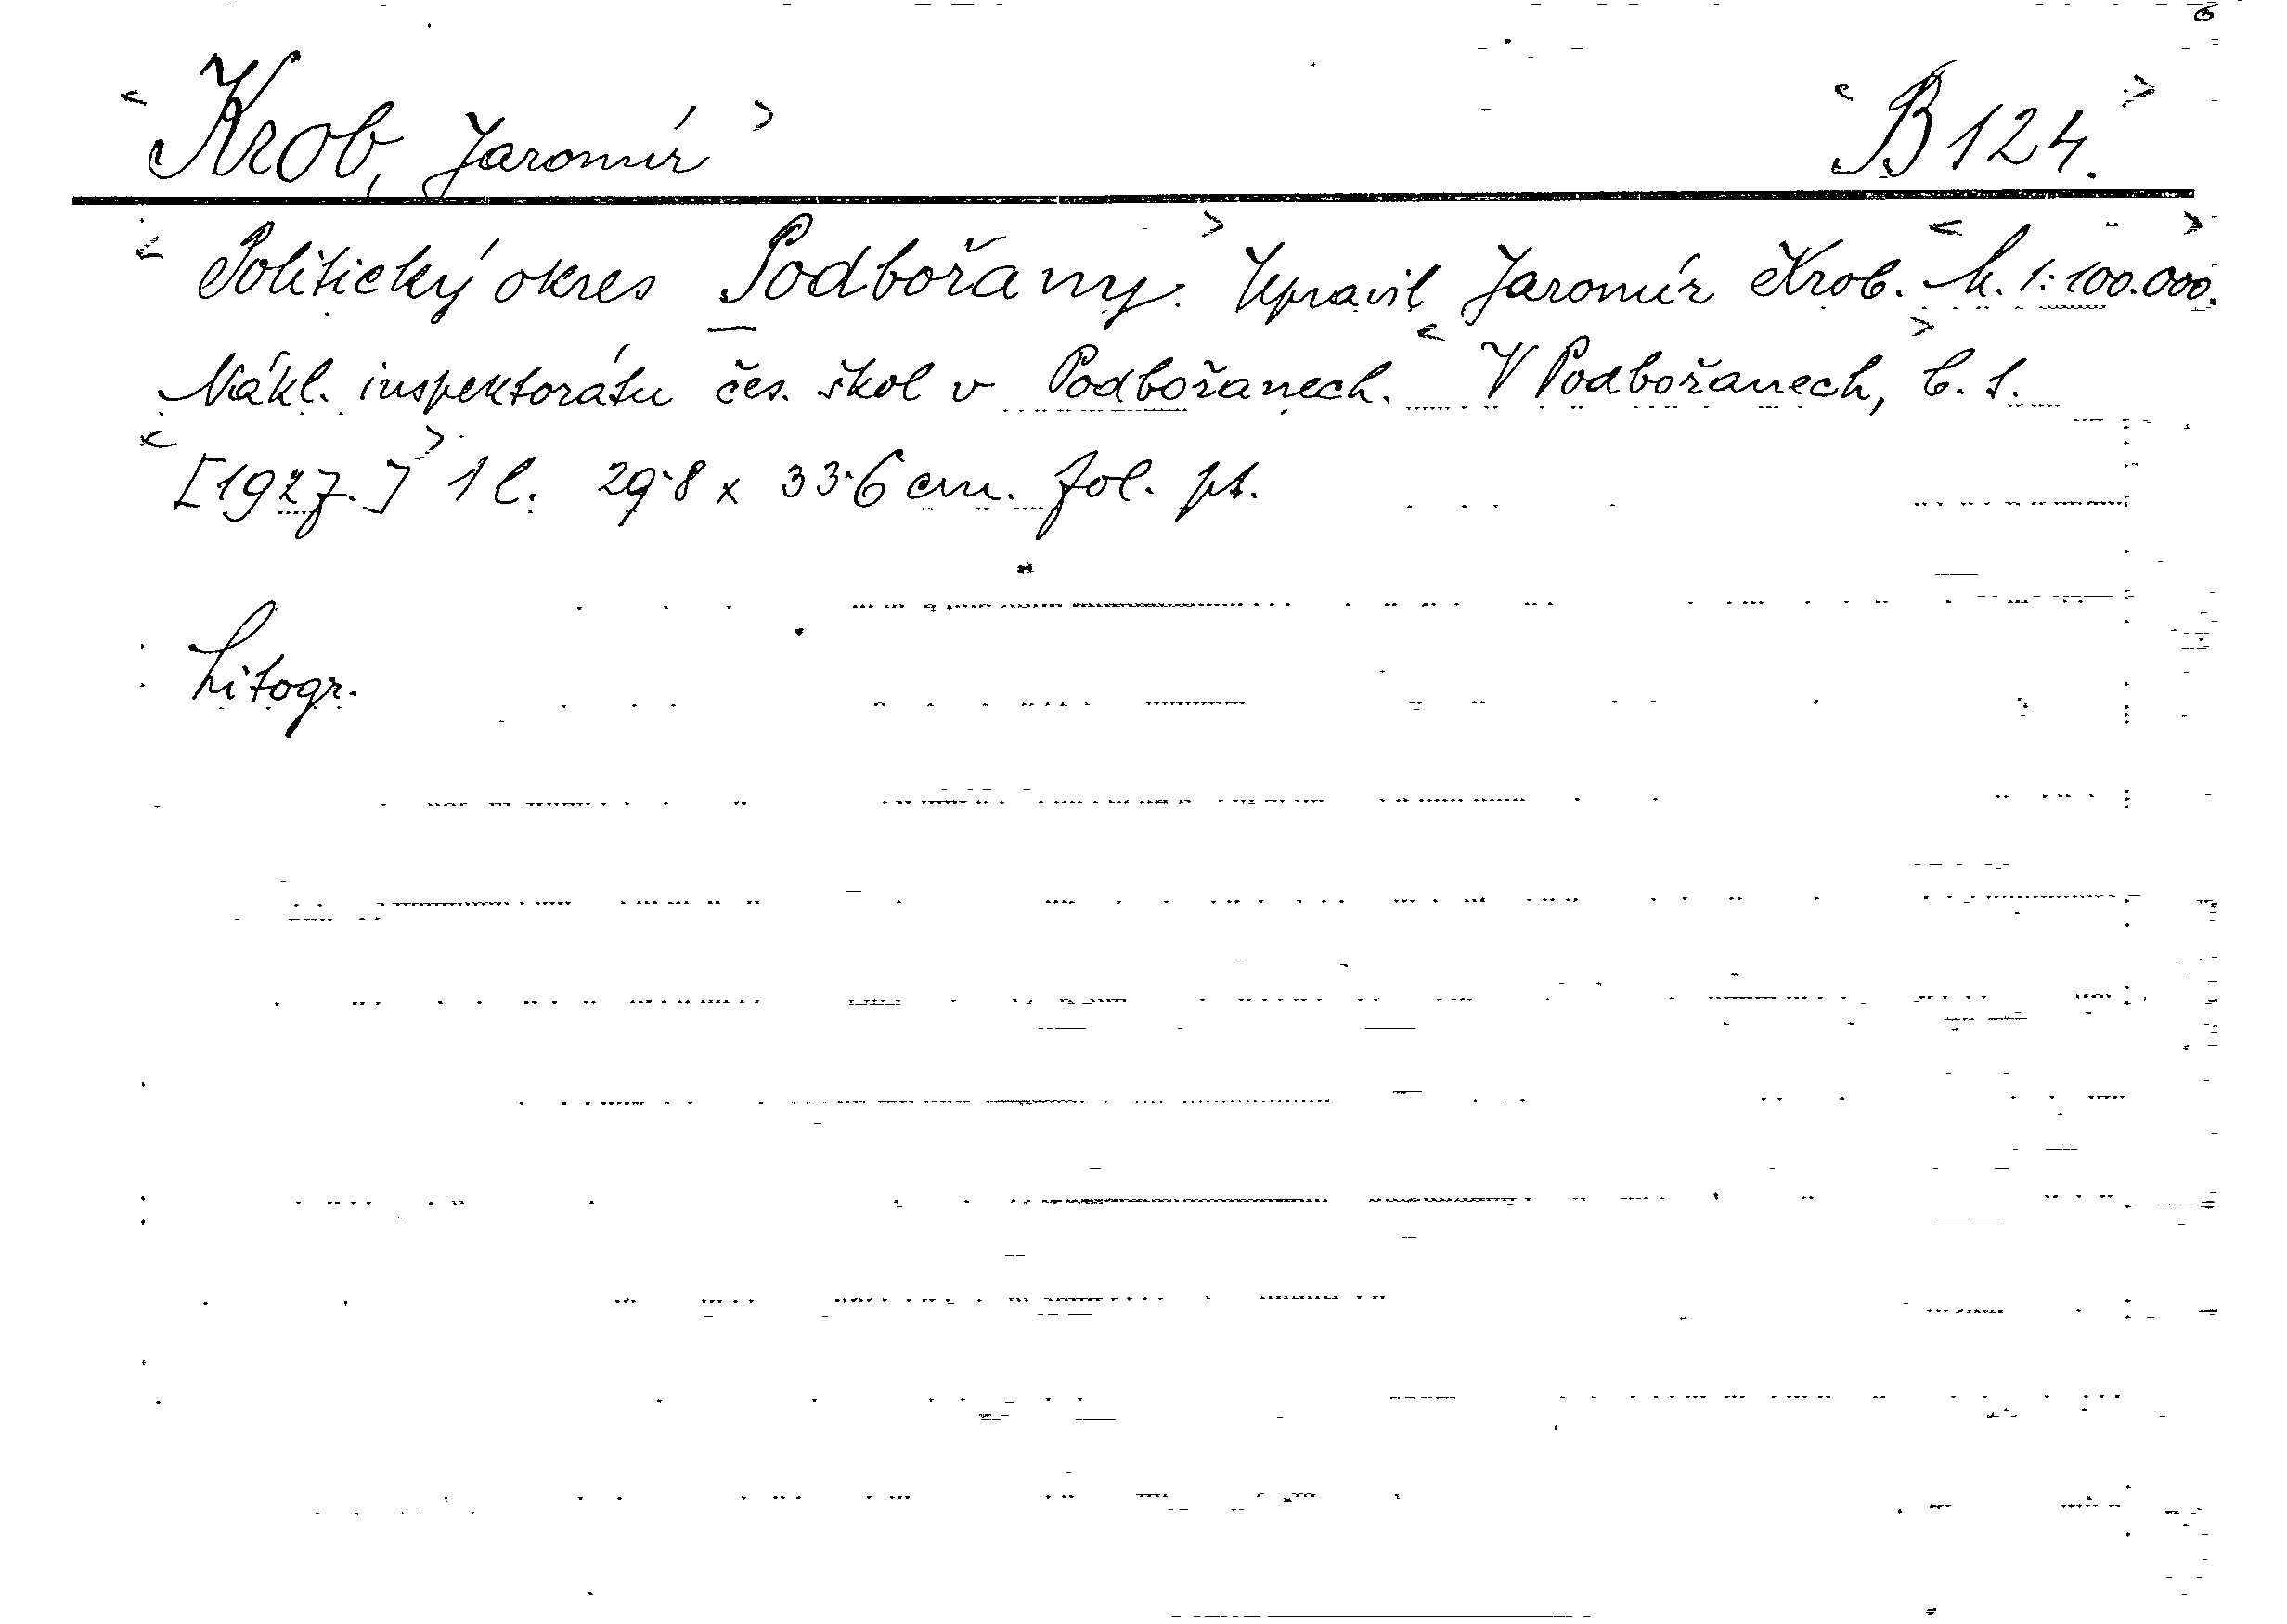 <Krob, Jaromír> <B 124.>
<Politický okres Podbořany.> Upravil Jaromír Krob. <M. 1:100.000.>
Nákl. inspektorátu čes. škol v Podbořanech. <V Podbořanech,> b. t.
<[1927.]> 1 l. 29·8 x 33·6 cm. fol. pt.
Litogr.